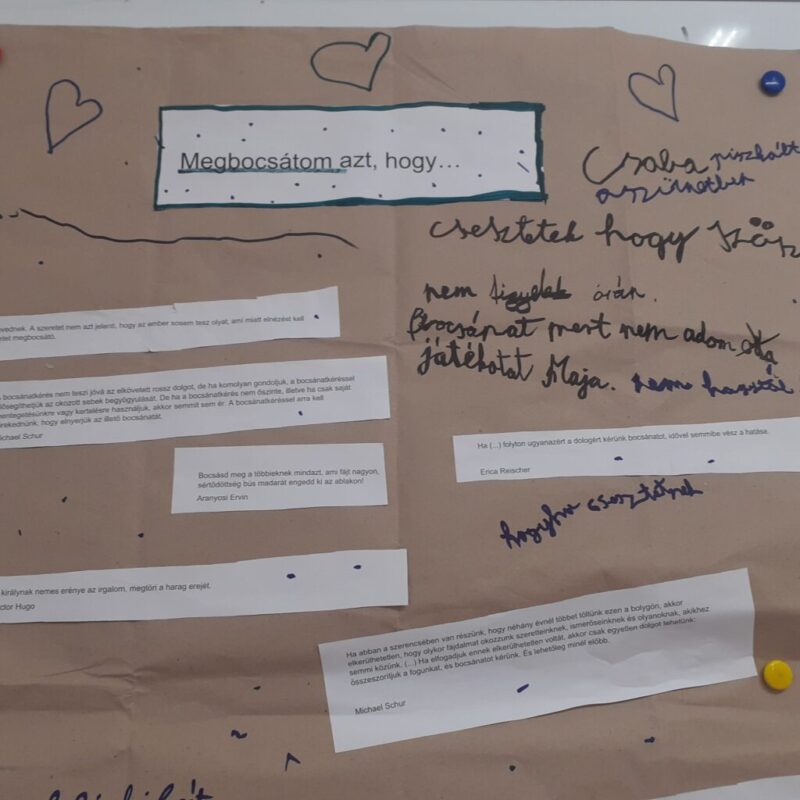 Megbocsátom azt, hogy...
Csaba piszkált
a szünetben
csesztetek hogy
nem figyelek órán.
Bocsánat mert nem adom
játékotat Maja. nem
vednek. A szeretet nem azt jelenti, hogy az ember sosem tesz olyat, ami miatt elnézést kell
megbocsátó.
bocsánatkérés nem teszi jóvá az elkövetett rossz dolgot, de ha komolyan gondoljuk, a bocsánatkéréssel
elősegíthetjük az okozott sebek begyógyulását. De ha a bocsánatkérés nem őszinte, illetve ha csak saját
mentegetésünkre vagy kertelésre használjuk, akkor semmit sem ér. A bocsánatkéréssel arra kell
törekednünk, hogy elnyerjük az illető bocsánatát.
Michael Schur
Ha (...) folyton ugyanazért a dologért kérünk bocsánatot, idővel semmibe vész a hatása.
Erica Reischer
Bocsásd meg a többieknek mindazt, ami fájt nagyon,
sértődöttség bús madarát engedd ki az ablakon!
Aranyosi Ervin
királynak nemes erénye az irgalom, megtöri a harag erejét.
ctor Hugo
Ha abban a szerencsében van részünk, hogy néhány évnél többet töltünk ezen a bolygón, akkor
elkerülhetetlen, hogy olykor fájdalmat okozzunk szeretteinknek, ismerőseinknek és olyanoknak, akikhez
semmi közünk. (...) Ha elfogadjuk ennek elkerülhetetlen voltát, akkor csak egyetlen dolgot tehetünk:
összeszorítjuk a fogunkat, és bocsánatot kérünk. És lehetőleg minél előbb.
Michael Schur